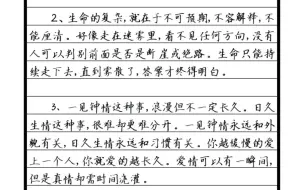 2、生命的复杂,就在于不可预期,不容解释,不
能厘清。好像走在迷雾里,看不见任何方向,没有
人可以判别前面是否是断崖或绝路。生命只能持
续走下去,直到雾散了,答案才终得明白。
3、一见钟情这种事,浪漫但不一定长久。日久
生情这种事,很难却更难分开。一见钟情永远和外
貌有关,日久生情永远和习惯有关。你越缓慢的爱
上一个人,你就爱的越长久。爱情可以有一瞬间,
但是真情却需时间浇灌。